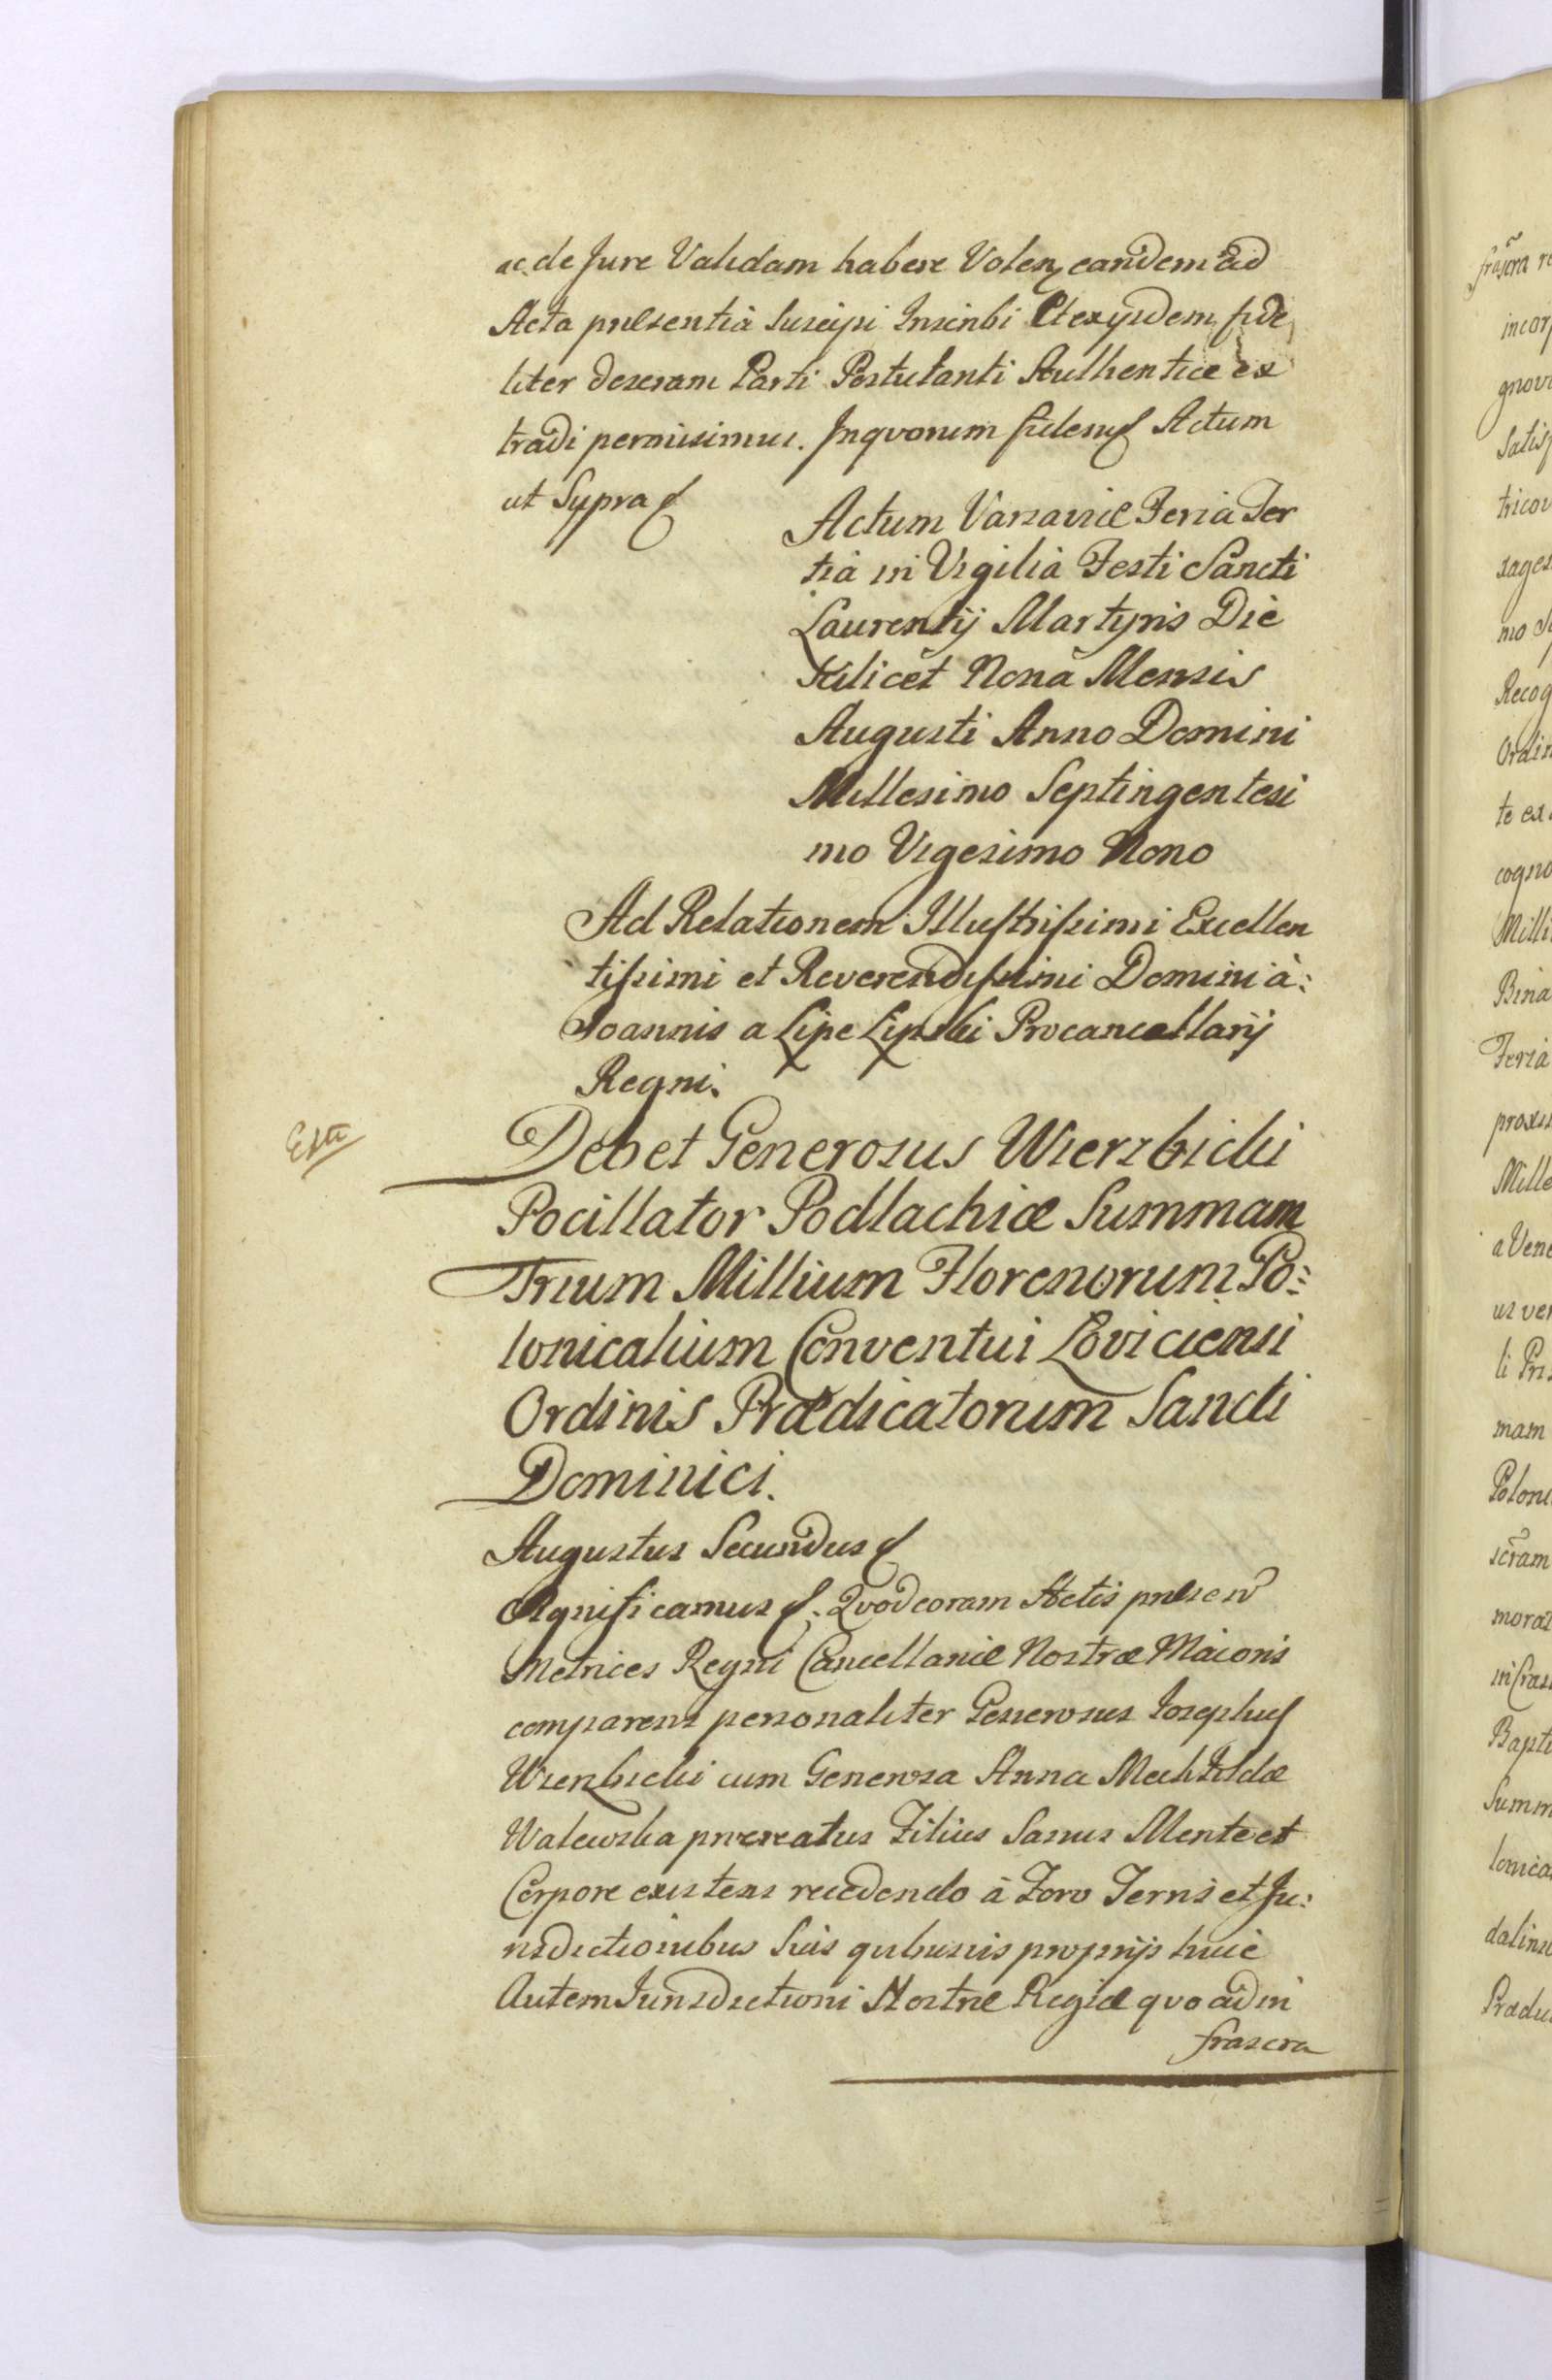 ac de Jure Validam habere Volens eandem ad
Acta præsentia Suscipi Inscribi Et ex ijsdem fide
liter descram Parti Postulanti Authentice ex
tradi permisimus. In quorum fidem Actum
ut Supra
Actum Varsaviæ Feria Ter
tia in Vigilia Festi Sancti
Laurentij Martyris Die
Scilicet Nona Mensis
Augusti Anno Domini
Millesimo Septingentesi
mo Vigesimo Nono
Ad Relationem Illustrissimi Excellen
tissimi et Reverendissimi Domini à:
Joannis a Lipe Lipski Procancellarij
Regni.
Debet Generosus Wierzbicki
Pocillator Podlachiæ Summam
Trium Millium Florenorum Po:
lonicalium Conventui Loviciensi
Ordinis Prædicatorum Sancti
Dominici.
Augustus Secundus
Significamus Quod coram Actis præsen
Metrices Regni Cancellariæ Nostræ Maioris
comparens personaliter Generosus Josephus
Wierzbicki cum Generosa Anna Mechtilda
Walewska procreatus Filius Sanus Mente et
Corpore existens recedendo à Foro Terris et Ju:
risdictionibus Suis quibusvis proprijs huic
Autem Jurisdictioni Nostræ Regiæ quo ad in
frascra
frascra re
incor
gnovi
Satisf
trico
sages
mo
Recog
Ordin
te ex
cogno
Milli
Bina
Feria
proxi
Mille
a Vene
us ver
li Pri
mam
Poloni
scram
morat
in Cras
Bapti
Summ
lonica
dalini
Prædi